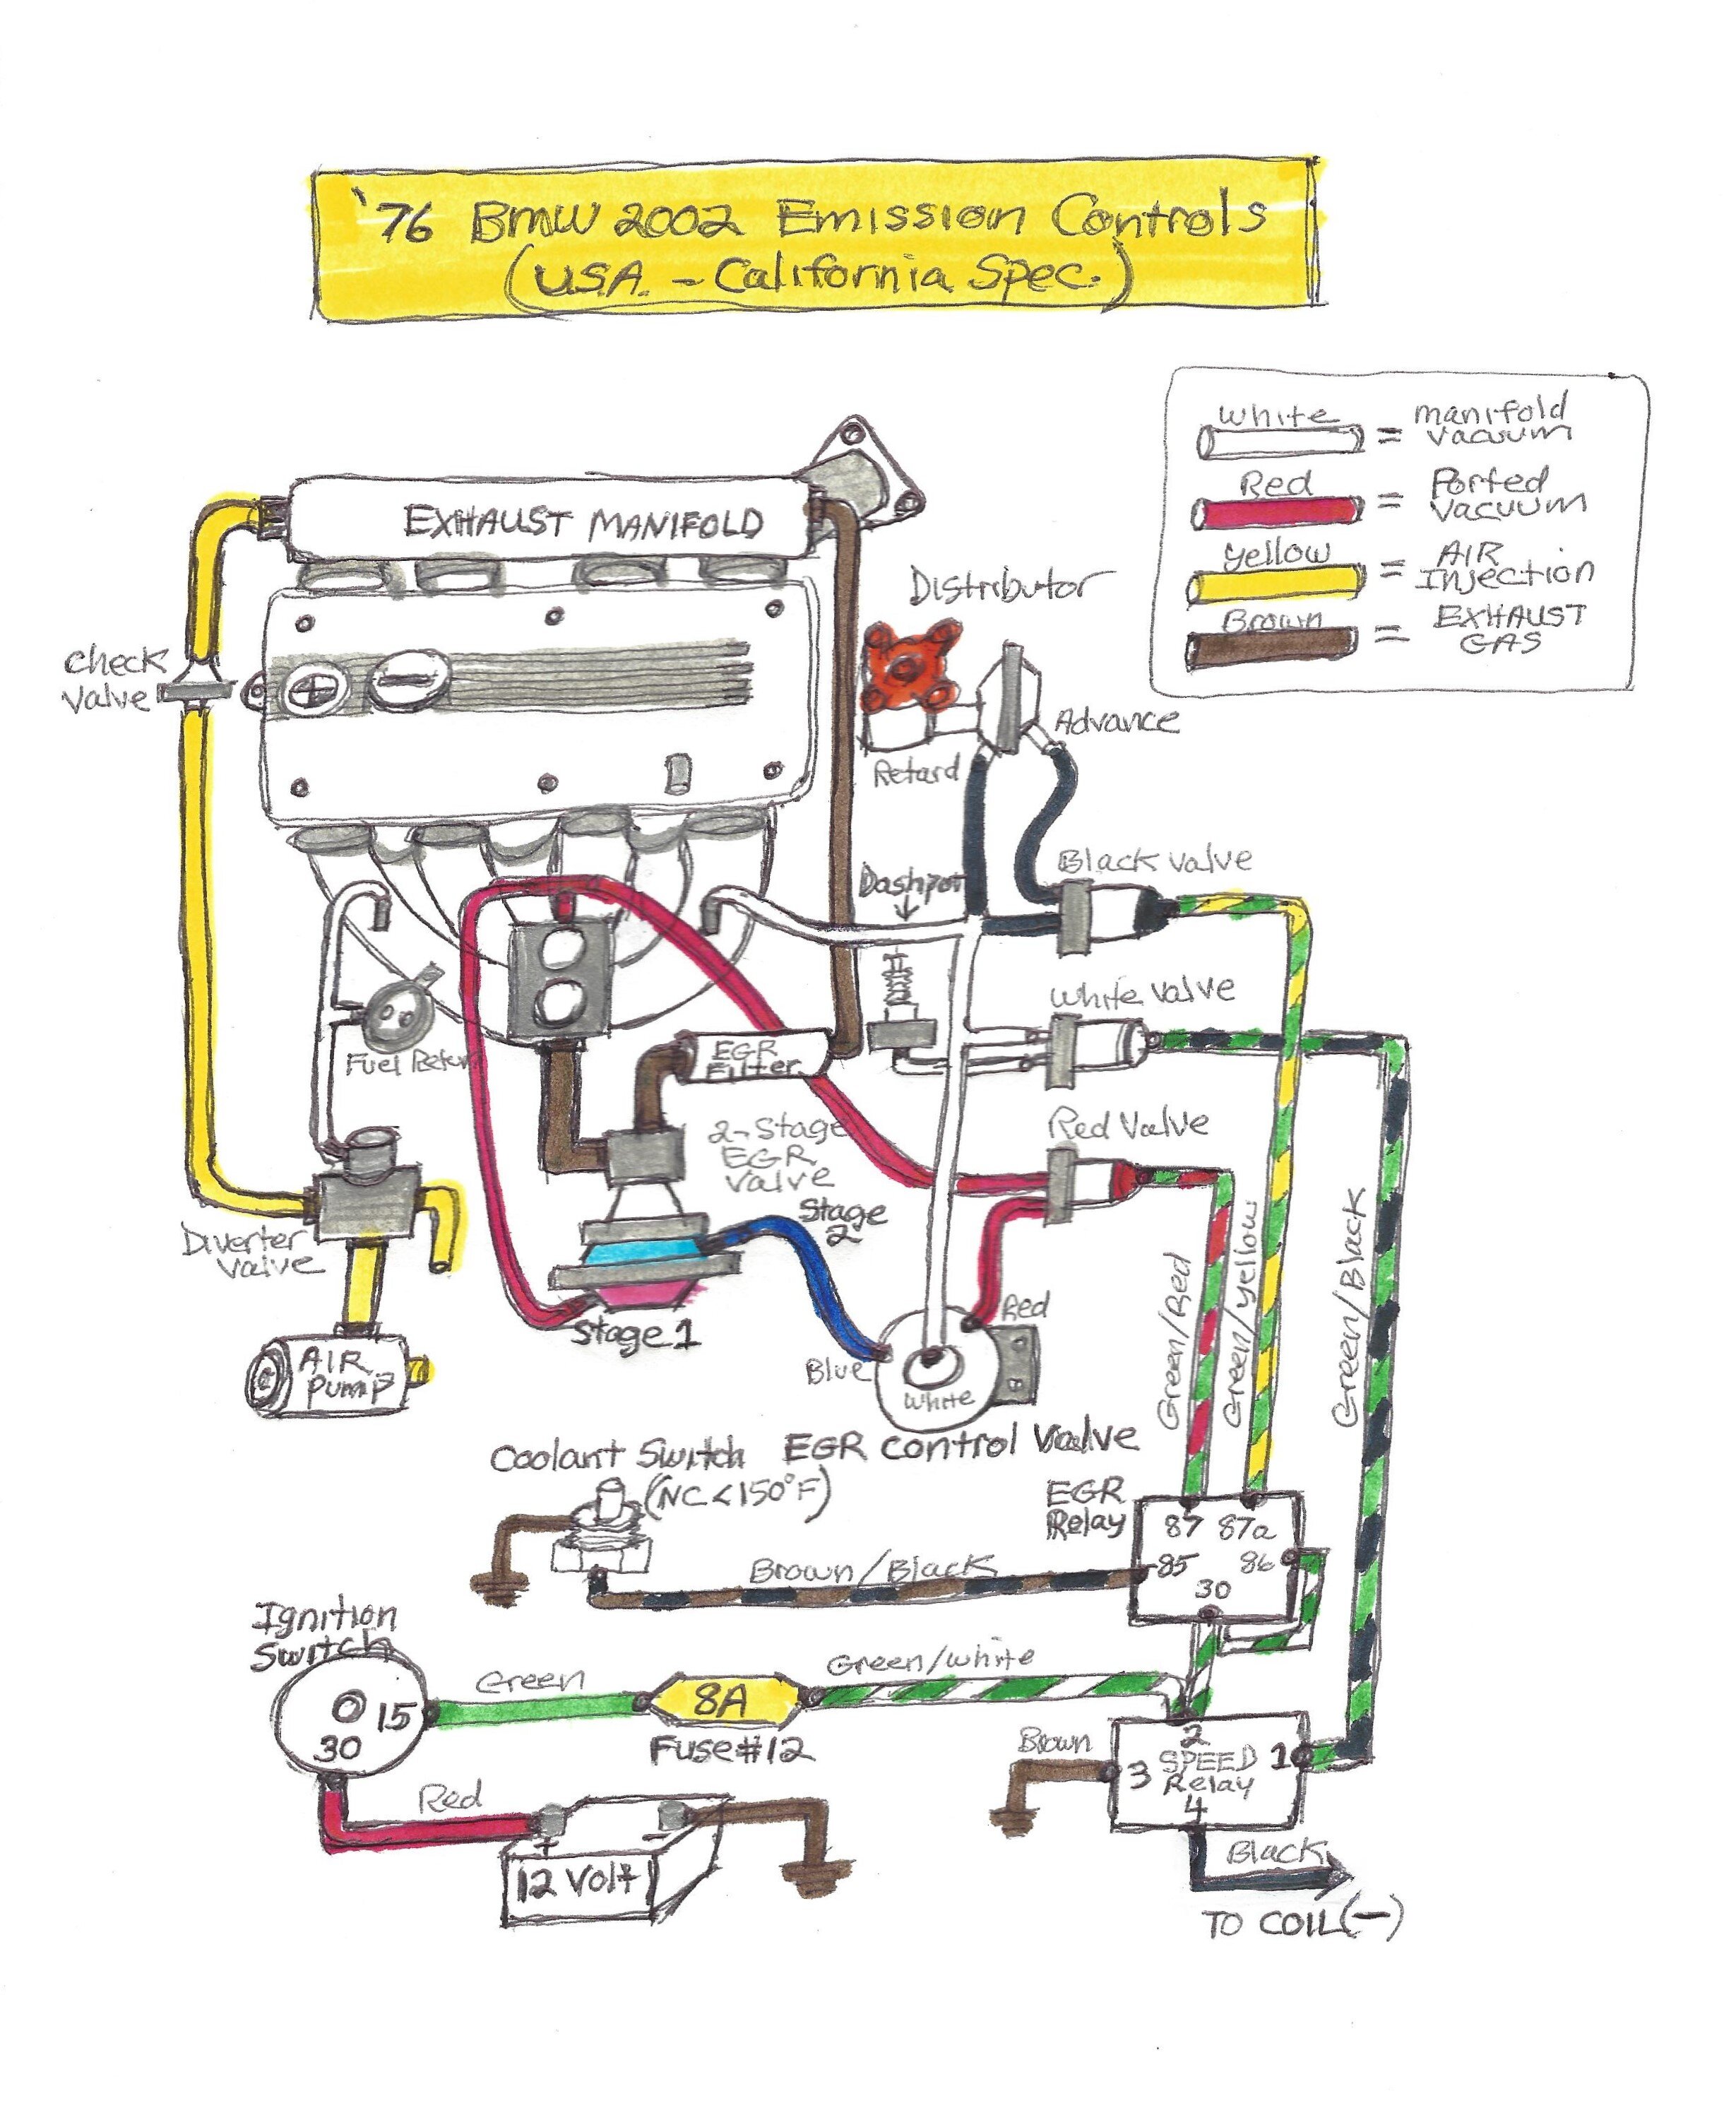 '76 BMW 2002 Emission Controls
(USA. - California Spec.)
White = manifold
Vacuum
Red = Ported
Vacuum
Yellow = AIR
Injection
Brown = EXHAUST
GAS
EXHAUST MANIFOLD
Distributor
Check
Valve
Advance
Retard
Black Valve
Dashpot
White Valve
Fuel Return
EGR
Filter
Red Valve
2-Stage
EGR
Valve
Stage
2
Diverter
Valve
Stage 1
Red
Blue
White
AIR
Pump
EGR Control Valve
Green/Red
Green/Yellow
Green/Black
Coolant Switch
(NC<150°F)
EGR
Relay
87 87a
85 86
30
Brown/Black
Ignition
Switch
15
30
Green
8A
Fuse#12
Green/White
Brown
2
3 SPEED 1
Relay
4
Red
+ -
12 Volt
Black
TO COIL(-)